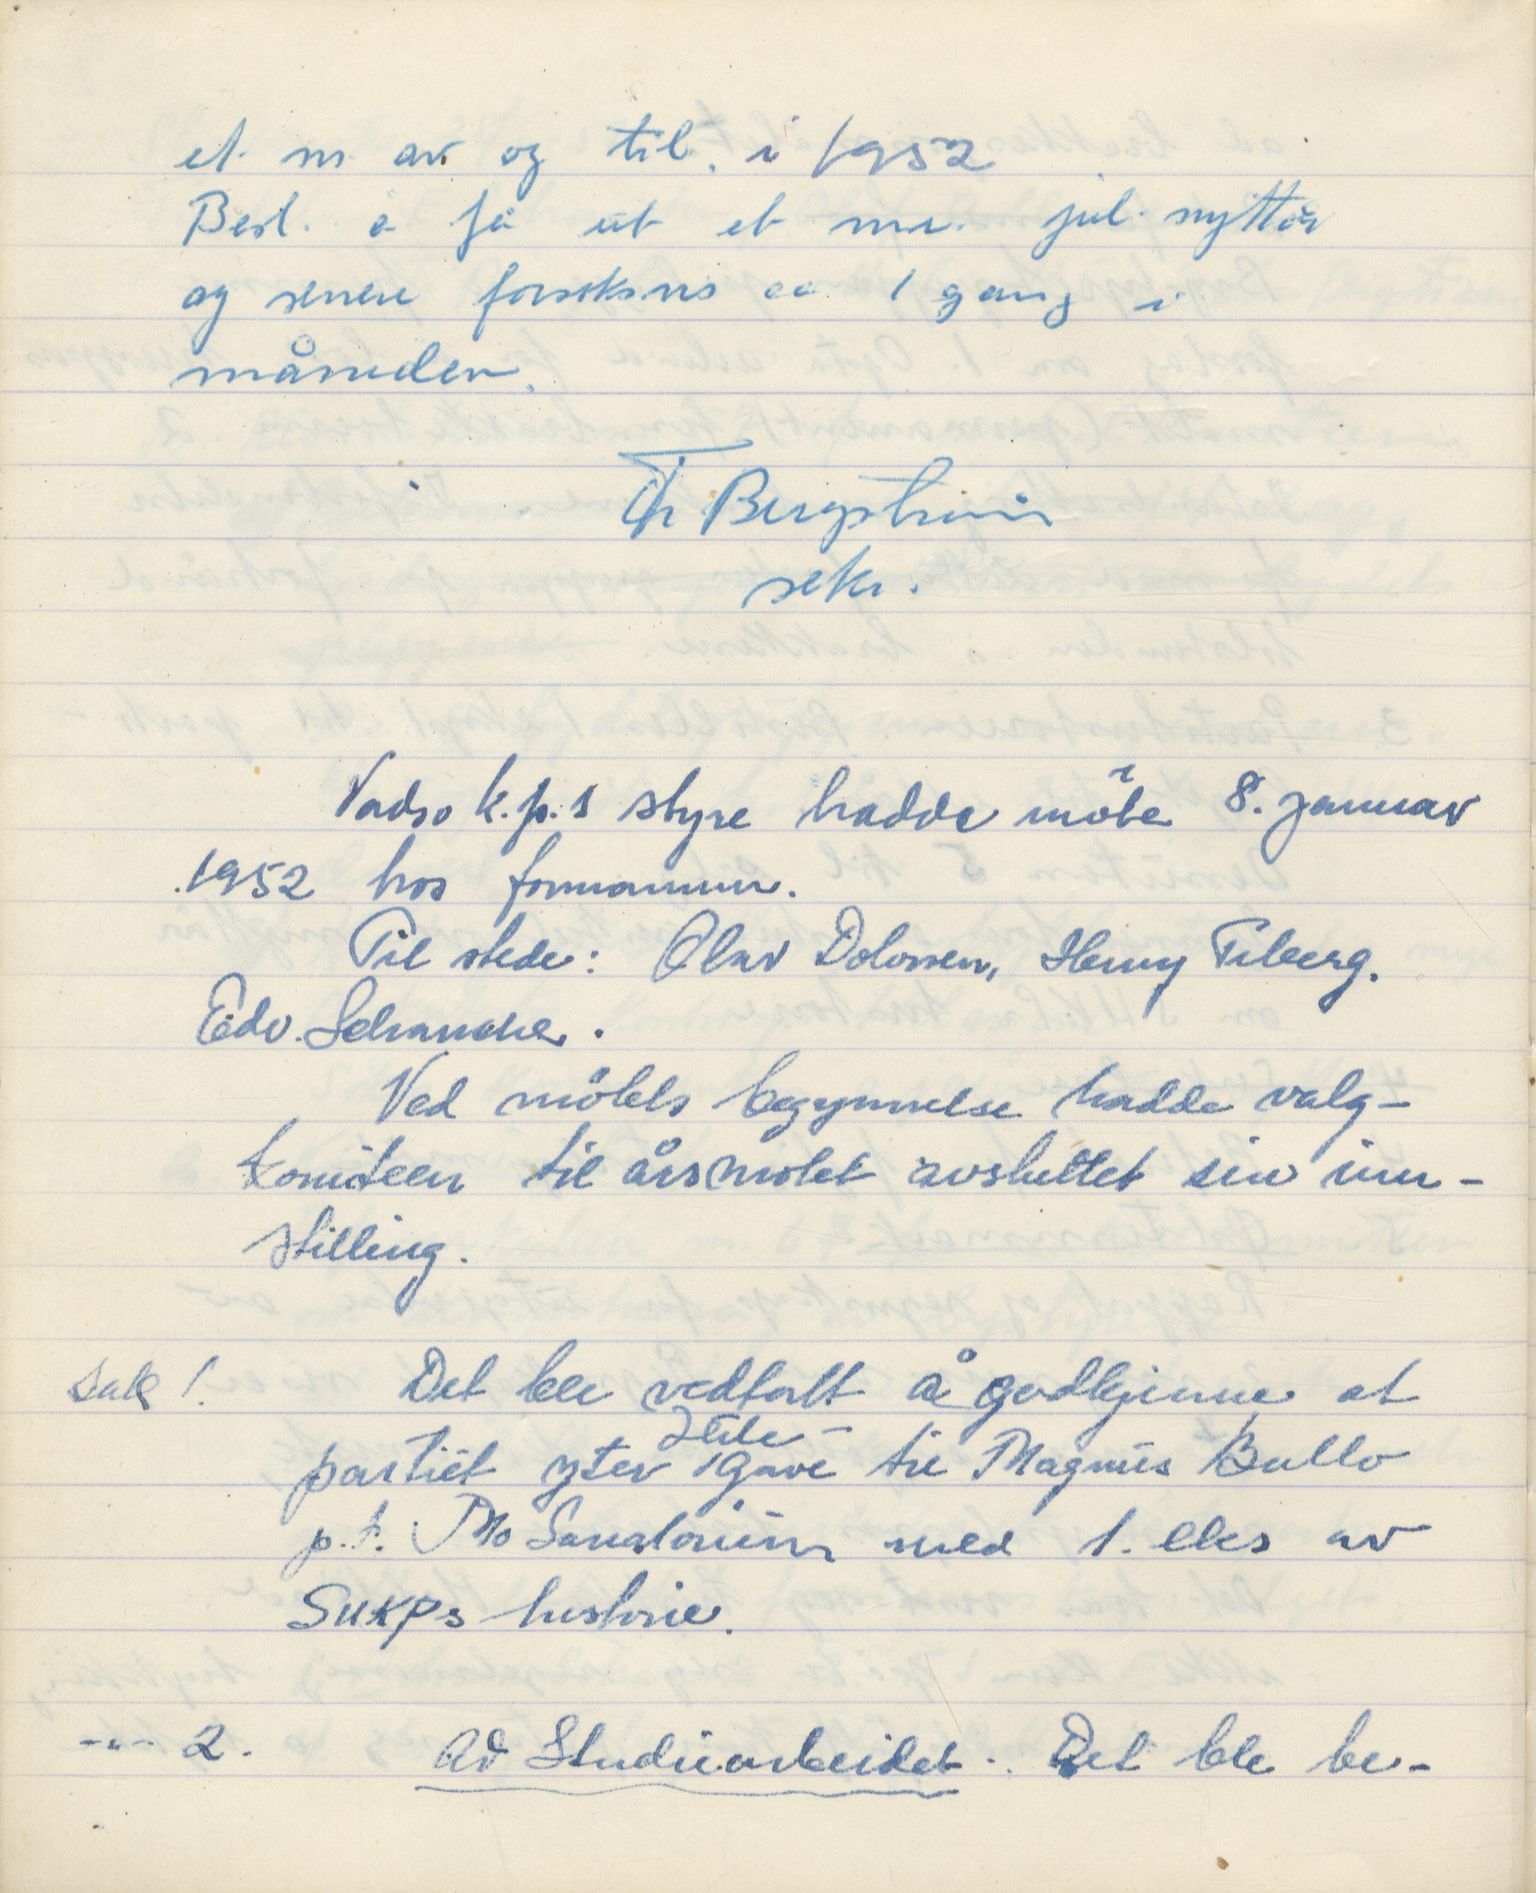 et nr av og til. i 1952
Besl. å få ut et nr. jul. nyttår
og senere forsøksvis ca 1 gang i
måneden.
Th Bergstrøm
sekr.
Vadsø k.p.s styre hadde möte 8. januar
1952 hos formannen.
Til stede: Olav Dolonen, Henry Fiberg.
Edv. Schanche.
Ved mötets begynnelse hadde valg-
komiteen til årsmötet avsluttet sin inn-
stilling.
Sak 1. Det ble vedtatt å godkjenne at
Jule-
partiet yter 1 gave til Magnus Bullo
p.t. Mo Sanatorium med 1. eks av
SUKPs historie.
-"- 2. Ad Studiearbeidet. Det ble be-